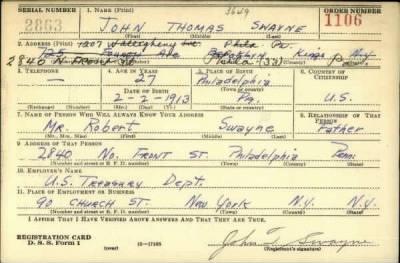 SERIAL NUMBER
1. NAME (Print)
3649
ORDER NUMBER
2863
JOHN THOMAS SWAYNE
1106
(First) (Middle) (Last)
2. ADDRESS (Print) 1207 Allegheny Ave. Phila Pa.
725 Ave Brooklyn Kings N.Y.
2840 N. Front St. Phila (33) Pa.
(Number and street or R. F. D. number) (Town) (County) (State)
3. TELEPHONE
4. AGE IN YEARS
5. PLACE OF BIRTH
6. COUNTRY OF CITIZENSHIP
—
27
Philadelphia
DATE OF BIRTH
(Town or county)
2-2-1913
Pa.
U.S.
(Exchange) (Number)
(Mo.) (Day) (Yr.)
(State or country)
7. NAME OF PERSON WHO WILL ALWAYS KNOW YOUR ADDRESS
8. RELATIONSHIP OF THAT PERSON
Mr. Robert Swayne Father
(Mr., Mrs., Miss) (First) (Middle) (Last)
9. ADDRESS OF THAT PERSON
2840 No. Front St. Philadelphia Penn.
(Number and street or R. F. D. number) (Town) (County) (State)
10. EMPLOYER'S NAME
U.S. Treasury Dept.
11. PLACE OF EMPLOYMENT OR BUSINESS
90 Church St. New York N.Y. N.Y.
(Number and street or R. F. D. number) (Town) (County) (State)
I AFFIRM THAT I HAVE VERIFIED ABOVE ANSWERS AND THAT THEY ARE TRUE.
REGISTRATION CARD
D. S. S. Form 1
(over)
16-17105
John T. Swayne
(Registrant's signature)